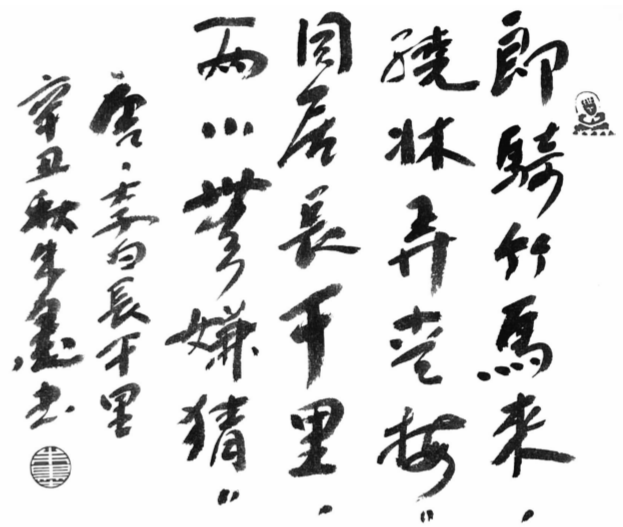 郎騎竹馬來，
繞牀弄青梅。
同居長干里，
兩小無嫌猜。
唐·李白長干里
辛丑秋朱書